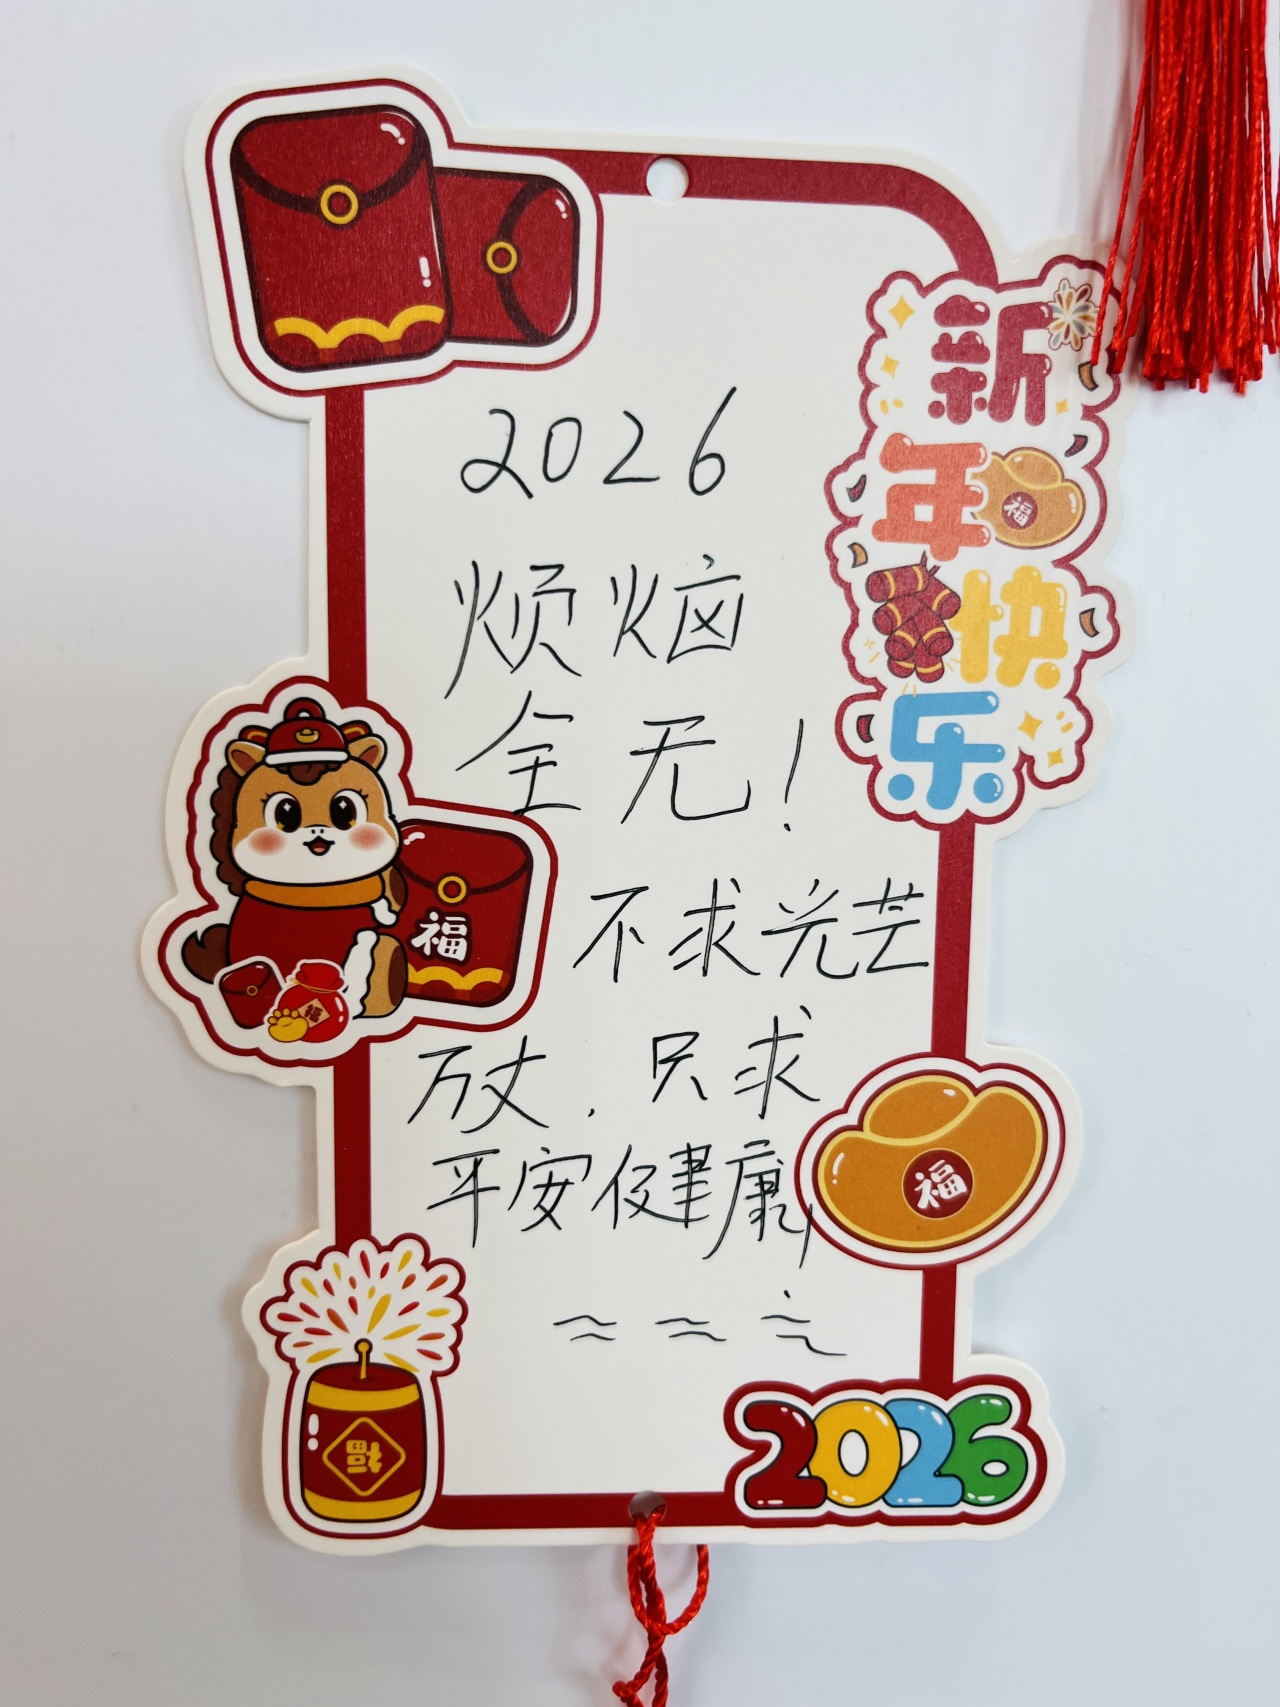 新
年
快
乐
2026
烦恼
全无！
不求光芒
万丈，只求
平安健康，
福
福
福
福
福
2026